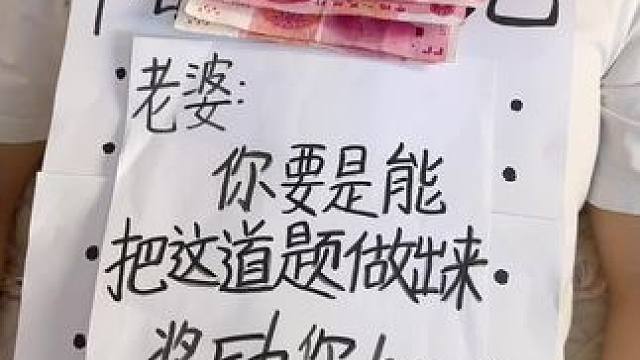 老婆:
你要是能
把这道题做出来
奖励你